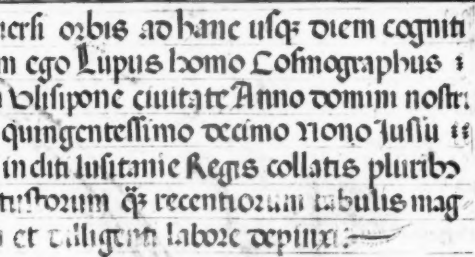 uersi orbis ad hanc usqꝫ diem cogniti
m ego Lupus homo Cosmographus :
Vlisipone ciuitate Anno domini nostri
quingentessimo decimo nono Iussu
incliti lusitanie Regis collatis pluribꝰ
tustorum qꝫ recentiorum tabulis mag
et dilligenti labore depinxi